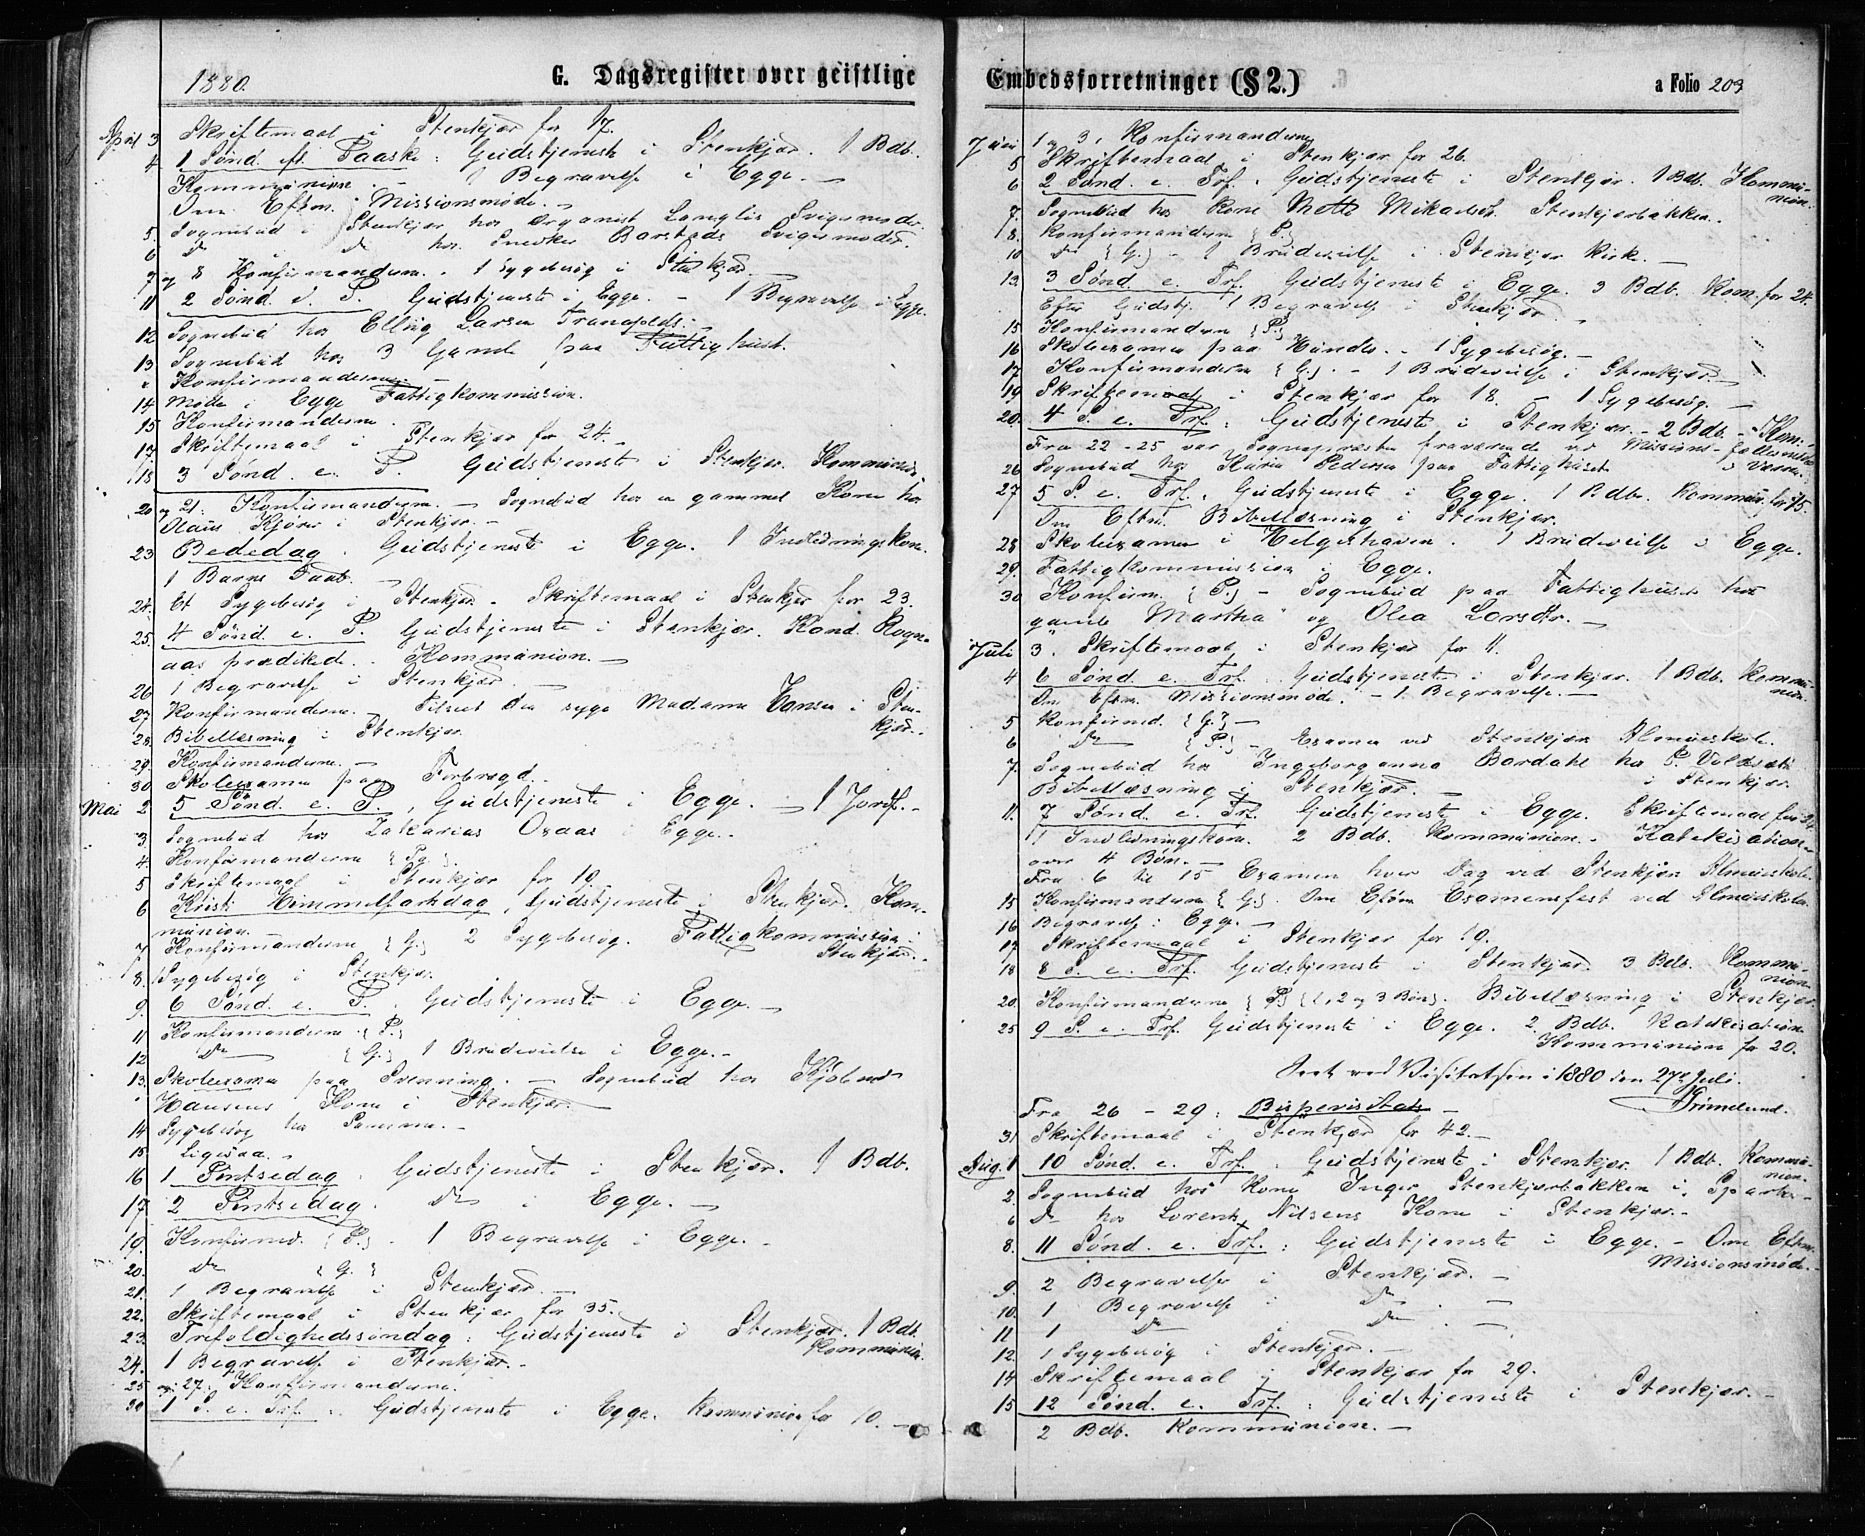 1880.
G. Dagsregister over geistlige
April 3 Skriftemaal i Stenkjær for 17.
4 1 Sønd. ef. Paaske: Gudstjeneste i Stenkjær. 1 Bdb.
Kommunion. - 1 Begravelse i Egge. -
Om Eftm. Missionsmøde. -
5. Sognebud i Stenkjær hos Organist Svigermoder.
6 do do hos Snedker Barstads Svigermoder.
7 og 8 Konfirmanderne. 1 Sygebesøg i Stenkjær. -
11 2 Sønd. e. P. Gudstjeneste i Egge. - 1 Begravelse i Egge.
12 Sognebud hos Elling Larsen
13 Sognebud hos 3 Gamle paa Fattighuset.
" Konfirmanderne. -
14 Møde i Egge Fattigkommission.
15 Konfirmanderne.
17 Skriftemaal i Stenkjær for 24. -
18 3 Sønd. e. P. Gudstjeneste i Stenkjær. Kommunion
20 og 21. Konfirmanderne. - Sognebud hos en gammel Kone hos
Olaus i Stenkjær. -
23 Bededag. Gudstjeneste i Egge. 1 Indledningskone.
1 Barne Daab. -
24. Et Sygebesøg i Stenkjær. - Skriftemaal i Stenkjær for 23.
25. 4 Sønd. e. P. Gudstjeneste i Stenkjær. Kand. Rogn-
aas prædikede. - Kommunion. -
26 1 Begravelse i Stenkjær. -
27 Konfirmanderne. - Tilseet den syge Madame Hansen i Sten-
kjær.
28. Bibellæsning i Stenkjær.
29. Konfirmanderne. -
30 Skoleexamen paa Forbregd. -
Mai 2 5 Sønd. e. P. Gudstjeneste i Egge. - 1 Jordf. -
3 Sognebud hos Zakarias Oxaas i Egge. -
4 Konfirmanderne {Pg}.
5 Skriftemaal i Stenkjær for 19.
6 Kristi Himmelfartsdag, Gudstjeneste i Stenkjær. Kom-
munion. -
7 Konfirmanderne {G.} 2 Sygebesøg. Fattigkommission i
Stenkjær. -
8. 1 Sygebesøg i Stenkjær.
9. 6 Sønd. e. P. Gudstjeneste i Egge. -
11 Konfirmanderne {P.}
12 do {G.} 1 Brudevielse i Egge. -
13. Skoleexamen paa Svenning. - Sognebud hos Kjøbmd
Hansens Kone i Stenkjær.
14 Sygebesøg hos Samme. -
15. Ligesaa. -
16 1 Pintsedag. Gudstjeneste i Stenkjær. 1 Bdb.
17 2 Pintsedag. do i Egge. -
19. Konfirmd. {P.} - 1 Begravelse i Egge. -
20. do {G.}
21. 1 Begravelse i Stenkjær. -
22. Skriftemaal i Stenkjær for 35. -
23. Trefoldighedssøndag: Gudstjeneste i Stenkjær. 1 Bdb.
Kommunion.
24. 1 Begravelse i Stenkjær. -
25 og 27. Konfirmanderne.
30 1 S. e. Tref. Gudstjeneste i Egge. Kommunion for 10. -
Embedsforretninger (§ 2.)
a Folio 209
Juni 1 og 3, Konfirmanderne
5 Skriftemaal i Stenkjær for 26.
6 2 Sønd. e. Tref. Gudstjeneste i Stenkjær. 1 Bdb. Kommu-
nion.
7. Sognebud hos Kone Mette Mikaels. Stenkjærbakken.
8. Konfirmanderne {P.}
10 do {G.} - 1 Brudevielse i Stenkjær Kirke. -
13. 3 Sønd. e. Tref. Gudstjeneste i Egge. 3 Bdb. Kom. for 24.
Efter Gudstj. 1 Begravelse i Stenkjær. -
15 Konfirmanderne {P.}
16 Skoleexamen paa - 1 Sygebesøg. -
17 Konfirmanderne {G.}. - 1 Brudevielse i Stenkjær. -
19 Skriftemaal i Stenkjær for 18. - 1 Sygebesøg. -
20. 4 S. e. Tref. Gudstjeneste i Stenkjær. - 2 Bdb. - Kom.
Fra 22 - 25 var Sognepræsten fraværende ved Missions-fællesmøde
i
26 Sognebud hos Karen Pedersen paa Fattighuset
27 5 S. e. Tref. Gudstjeneste i Egge. 1 Bdb. Kommun. for 15.
Om Eftm. Bibellæsning i Stenkjær.
28 Skoleexamen i Helgeshaven. 1 Brudevielse i Egge.
29. Fattigkommission i Egge.
30 Konfirm. {P.} - Sognebud paa Fattighuset hos
gamle "Martha" og Olea Larsdtr. -
Juli 3. Skriftemaal i Stenkjær for 11.
4 6 Sønd. e. Tref. Gudstjeneste i Stenkjær. 1 Bdb. Kommu-
nion.
Om Eftm. Missionsmøde. - 1 Begravelse. -
5 Konfirmd. {G.} -
6 do {P.} - Examen ved Stenkjær Almueskole.
7. Sognebud hos Ingeborganna Bardahl hos P.
i Stenkjær.
Bibellæsning i Stenkjær. -
11. 7 Sønd. e. Tref. Gudstjeneste i Egge. Skriftemaal for 24
1 Indledningskone. 2 Bdb. Kommunion. - Katekisation
over 4 Børn. -
Fra 6 til 15 Examen hver Dag ved Stenkjær Almueskole
15 Konfirmanderne {G.}. Om Eftm Examensfest ved Almueskolen
16 Begravelse i Egge. -
17 Skriftemaal i Stenkjær for 19.
18 8 S. e. Tref. Gudstjeneste i Stenkjær. 3 Bdb. Kommu-
nion
20. Konfirmanderne {P.} {1, 2 og 3 Bøn}. Bibellæsning i Stenkjær
25 9 S. e. Tref. Gudstjeneste i Egge. 2 Bdb. Katekisation
Kommunion for 20.
Seet ved Visitatsen i 1880 den 27de Juli.
Grimelund.
Fra 26 - 29: Bispevisitats -
31 Skriftemaal i Stenkjær for 42. -
Aug. 1 10 Sønd. e. Tref. Gudstjeneste i Stenkjær. 1 Bdb. Kommu-
nion.
2. Sognebud hos Kone Inger Stenkjærbakken i
6 do hos Lorents Nilsens Kone i Stenkjær. -
8. 11 Sønd. e. Tref.: Gudstjeneste i Egge. - Om Eftm.
Missionsmøde.
9. 2 Begravelser i Stenkjær. -
10. 1 Begravelse i do. -
11 1 do do. -
12. 1 Sygebesøg i Stenkjær. -
14 Skriftemaal i Stenkjær for 29.
15 12 Sønd. e. Tref.: Gudstjeneste i Stenkjær. -
2 Bdb. Kommunion. -